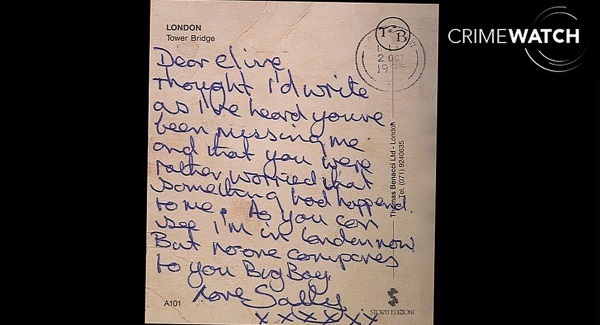 LONDON
Tower Bridge
CRIMEWATCH
T B
2 OCT
19
Dear Clive
Thought I'd write
as I've heard you've
been missing me
and that you were
rather worried that
something had happend
to me. As you can
see I'm in London now
But no-one compares
to you Big Boy.
Love Sally
xxxxxx
Thomas Benacci Ltd - London
Tel. (071) 9240635
A101
STORTI EDIZIONI